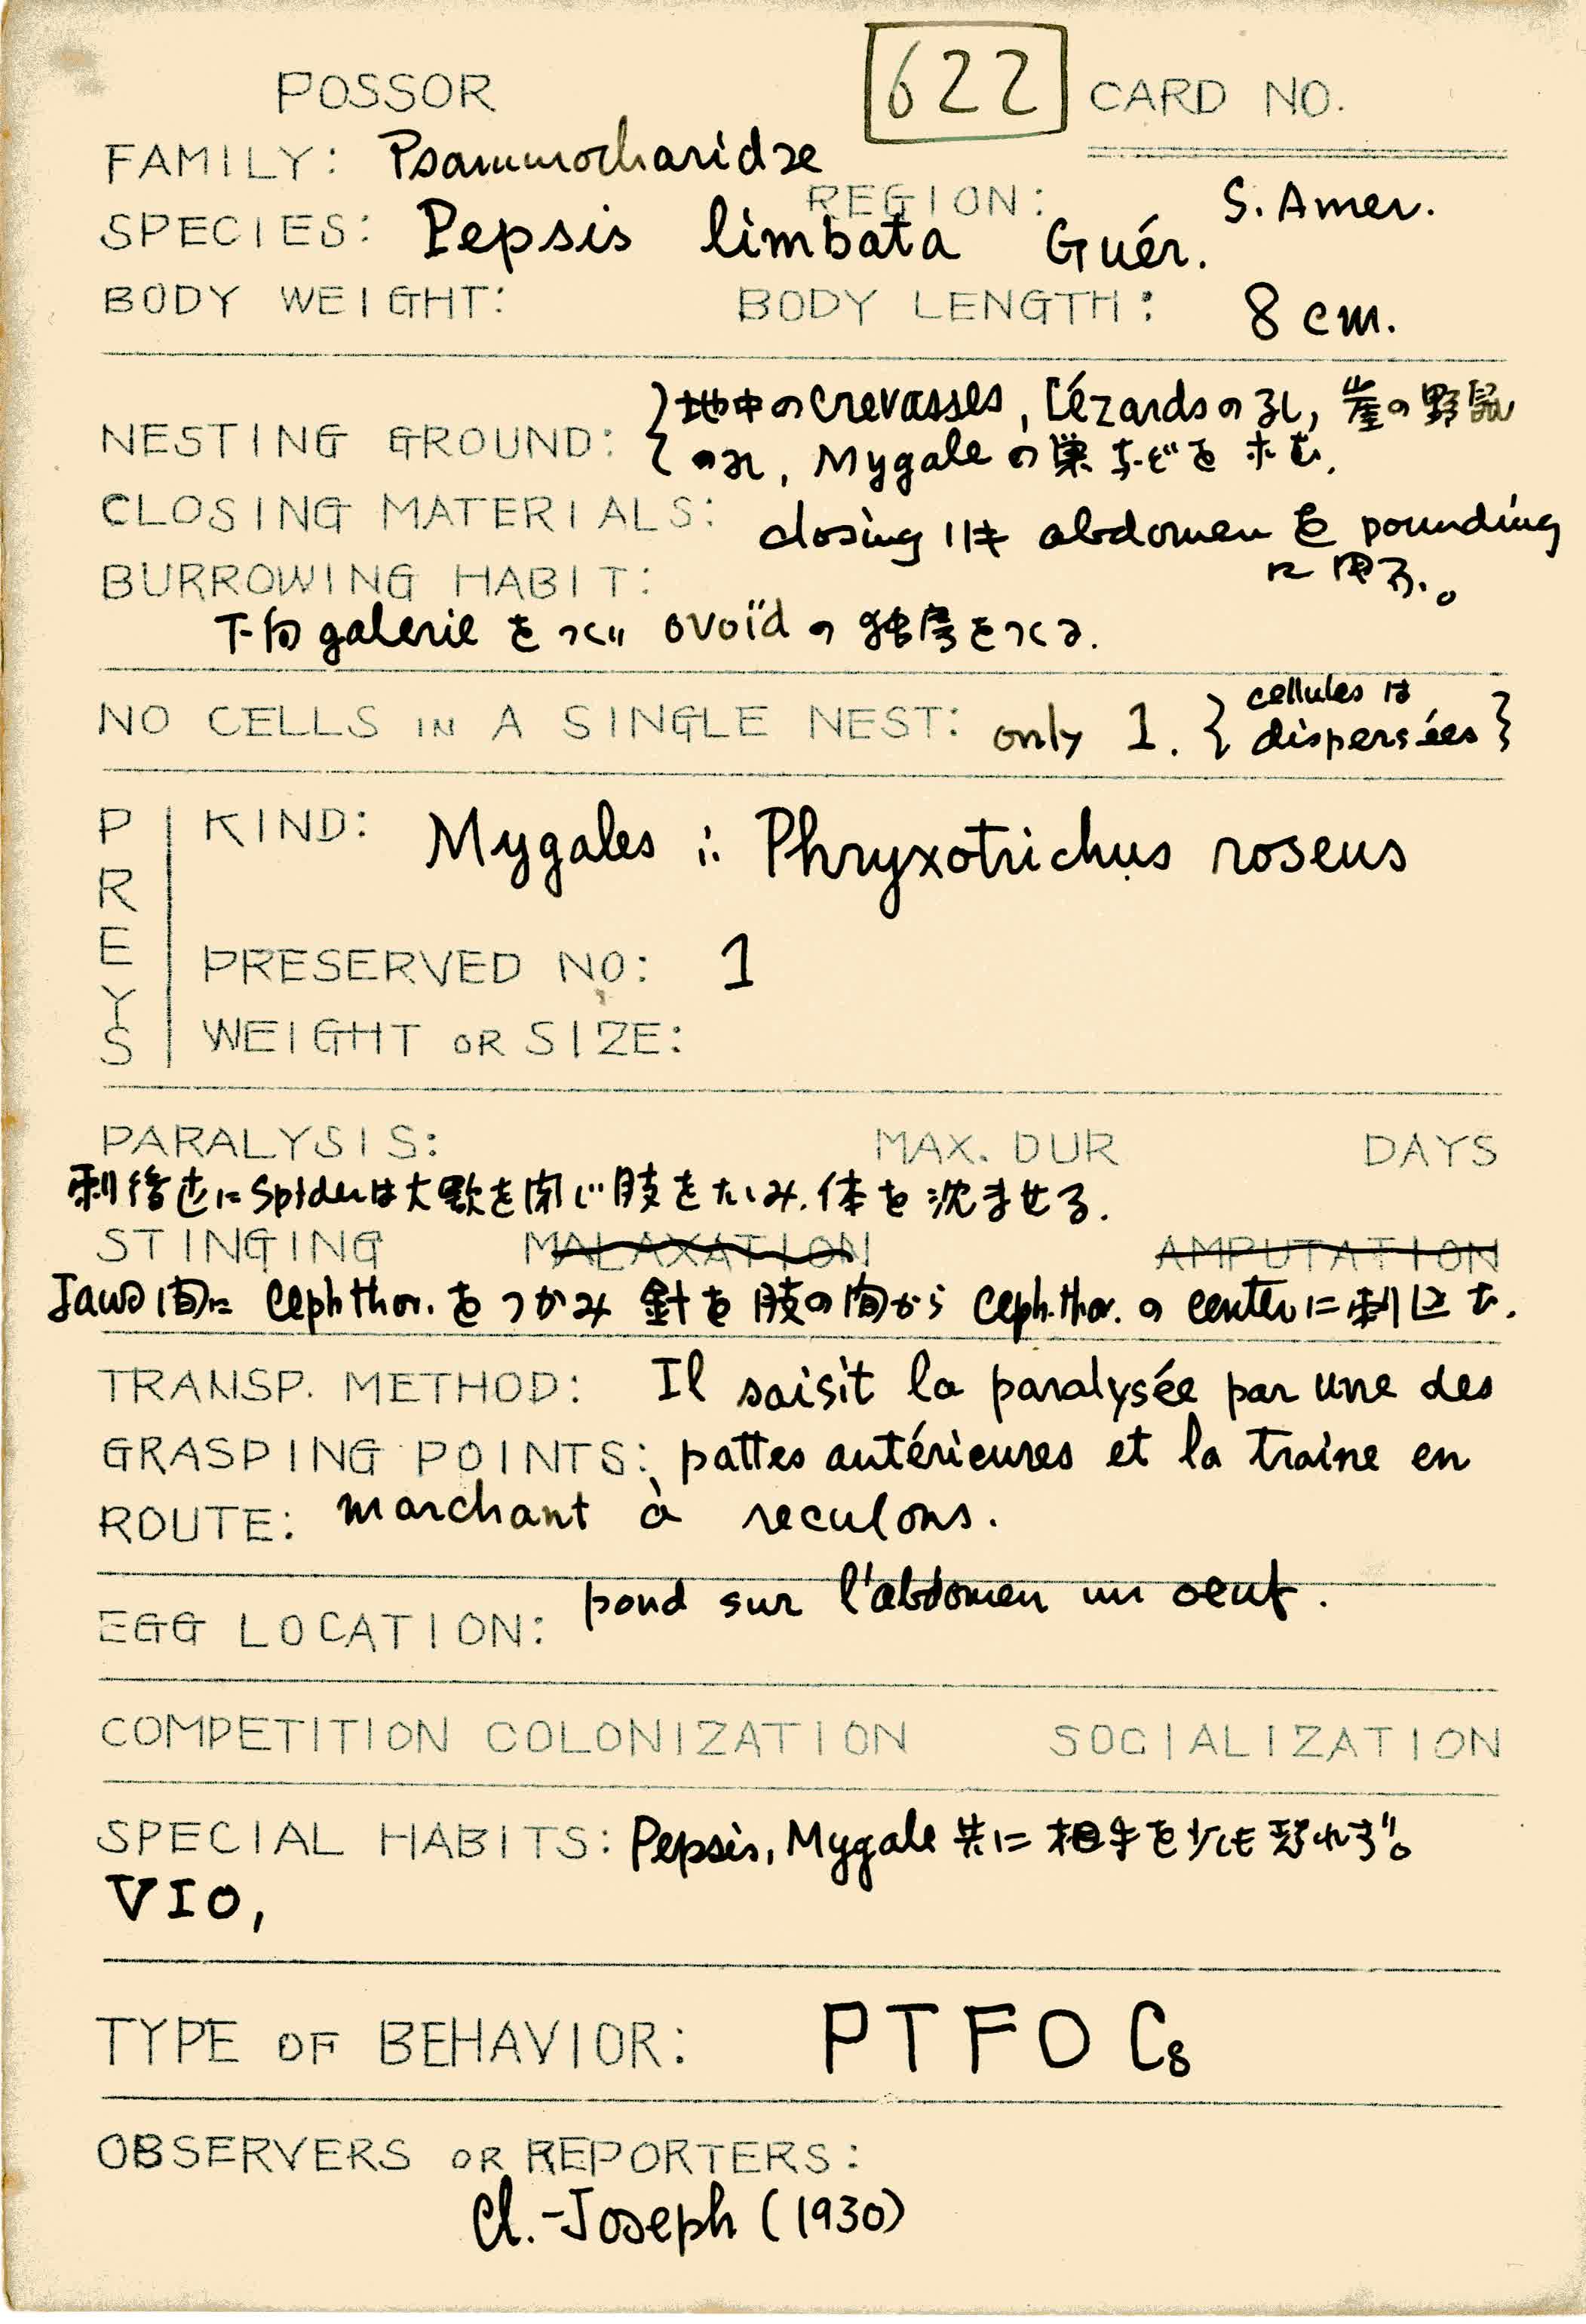 POSSOR 622 CARD NO.
FAMILY: Psammocharidae
REGION: S. Amer.
SPECIES: Pepsis limbata Guér.
BODY WEIGHT: BODY LENGTH: 8 cm.
{地中のcrevasses, Lézardsの孔, 崖の野鼠
NESTING GROUND: の孔, Mygaleの巣などを求む.
CLOSING MATERIALS: closingには abdomen を pounding
に用ふ。
BURROWING HABIT:
下向galerieをつくり ovoïdの独房をつくる.
NO CELLS IN A SINGLE NEST: only 1. {cellulesは
dispersées}
PREYS
KIND: Mygales ∴ Phryxotrichus roseus
PRESERVED NO: 1
WEIGHT OR SIZE:
PARALYSIS: MAX. DUR DAYS
刺后直にSpiderは大顎を閉じ肢をたゝみ、体を沈ませる.
STINGING MALAXATION AMPUTATION
Jaws間に Cephthor. をつかみ 針を肢の間から Ceph.thor. の centerに刺込む.
TRANSP. METHOD: Il saisit la paralysée par une des
GRASPING POINTS: pattes antérieures et la traine en
ROUTE: marchant à reculons.
EGG LOCATION: pond sur l'abdomen un oeuf.
COMPETITION COLONIZATION SOCIALIZATION
SPECIAL HABITS: Pepsis, Mygale 共に相手を少しも恐れず。
VIO,
TYPE OF BEHAVIOR: PTFOC8
OBSERVERS OR REPORTERS:
Cl.-Joseph (1930)